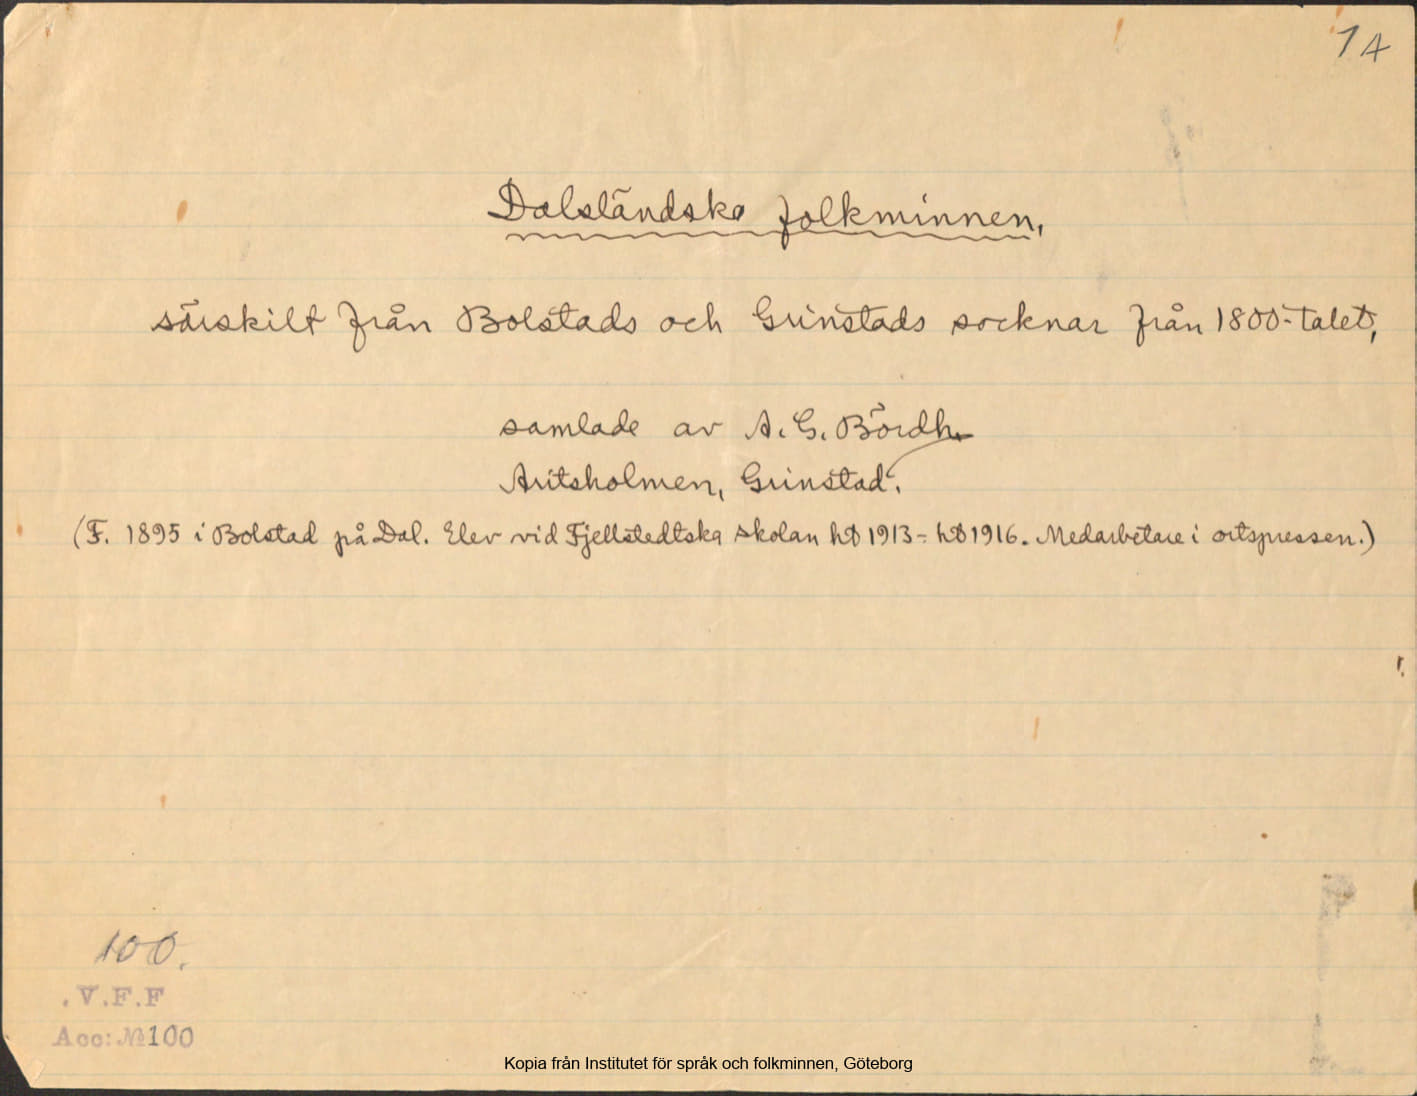 1 A
Dalsländska folkminnen,
särskilt från Bolstads och Grinstads socknar från 1800-talet,
samlade av A. G. Bördh.
Aritsholmen, Grinstad.
(F. 1895 i Bolstad på Dal. Elev vid Fjellstedtska skolan ht 1913 - ht 1916. Medarbetare i ortspressen.)
100.
V.F.F
Acc: № 100
Kopia från Institutet för språk och folkminnen, Göteborg